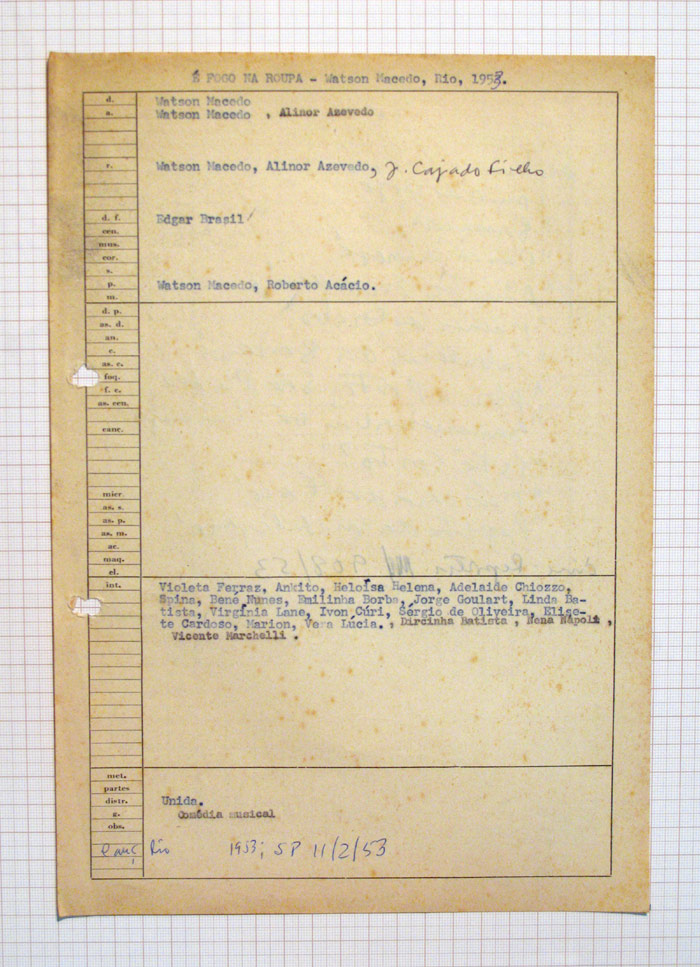 É FOGO NA ROUPA - Watson Macedo, Rio, 1953.
d. Watson Macedo
a. Watson Macedo , Alinor Azevedo
r. Watson Macedo, Alinor Azevedo, J. Cajado Filho
d. f. Edgar Brasil
cen.
mus.
cor.
s.
p. Watson Macedo, Roberto Acácio.
m.
d. p.
as. d.
an.
c.
as. c.
foq.
f. c.
as. cen.
canc.
micr.
as. s.
as. p.
as. m.
ac.
maq.
el.
int. Violeta Ferraz, Ankito, Heloísa Helena, Adelaide Chiozzo,
Spina, Bené Nunes, Emilinha Borba, Jorge Goulart, Linda Ba-
tista, Virgínia Lane, Ivon Cúri, Sérgio de Oliveira, Elise-
te Cardoso, Marion, Vera Lúcia. , Dircinha Batista , Nena Nápoli ,
Vicente Marchelli .
met.
partes
distr. Unida.
g. Comédia musical
obs.
Rio 1953; SP 11/2/53